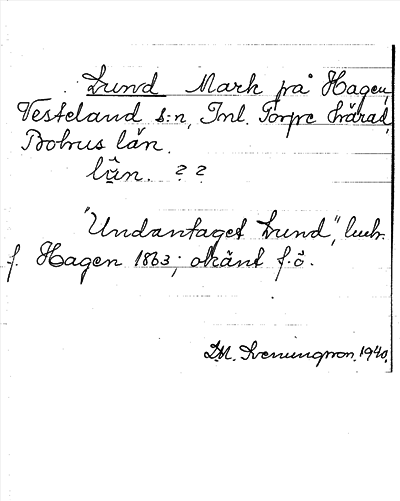 Lund Mark på Hagen,
Västerland s:n, Inl. Torpe härad,
Bohus län.
lŭn. ? ?
"Undantaget Lund", lucr.
f. Hagen 1863; okänt f.ö.
D.M. Svenungson. 1940.